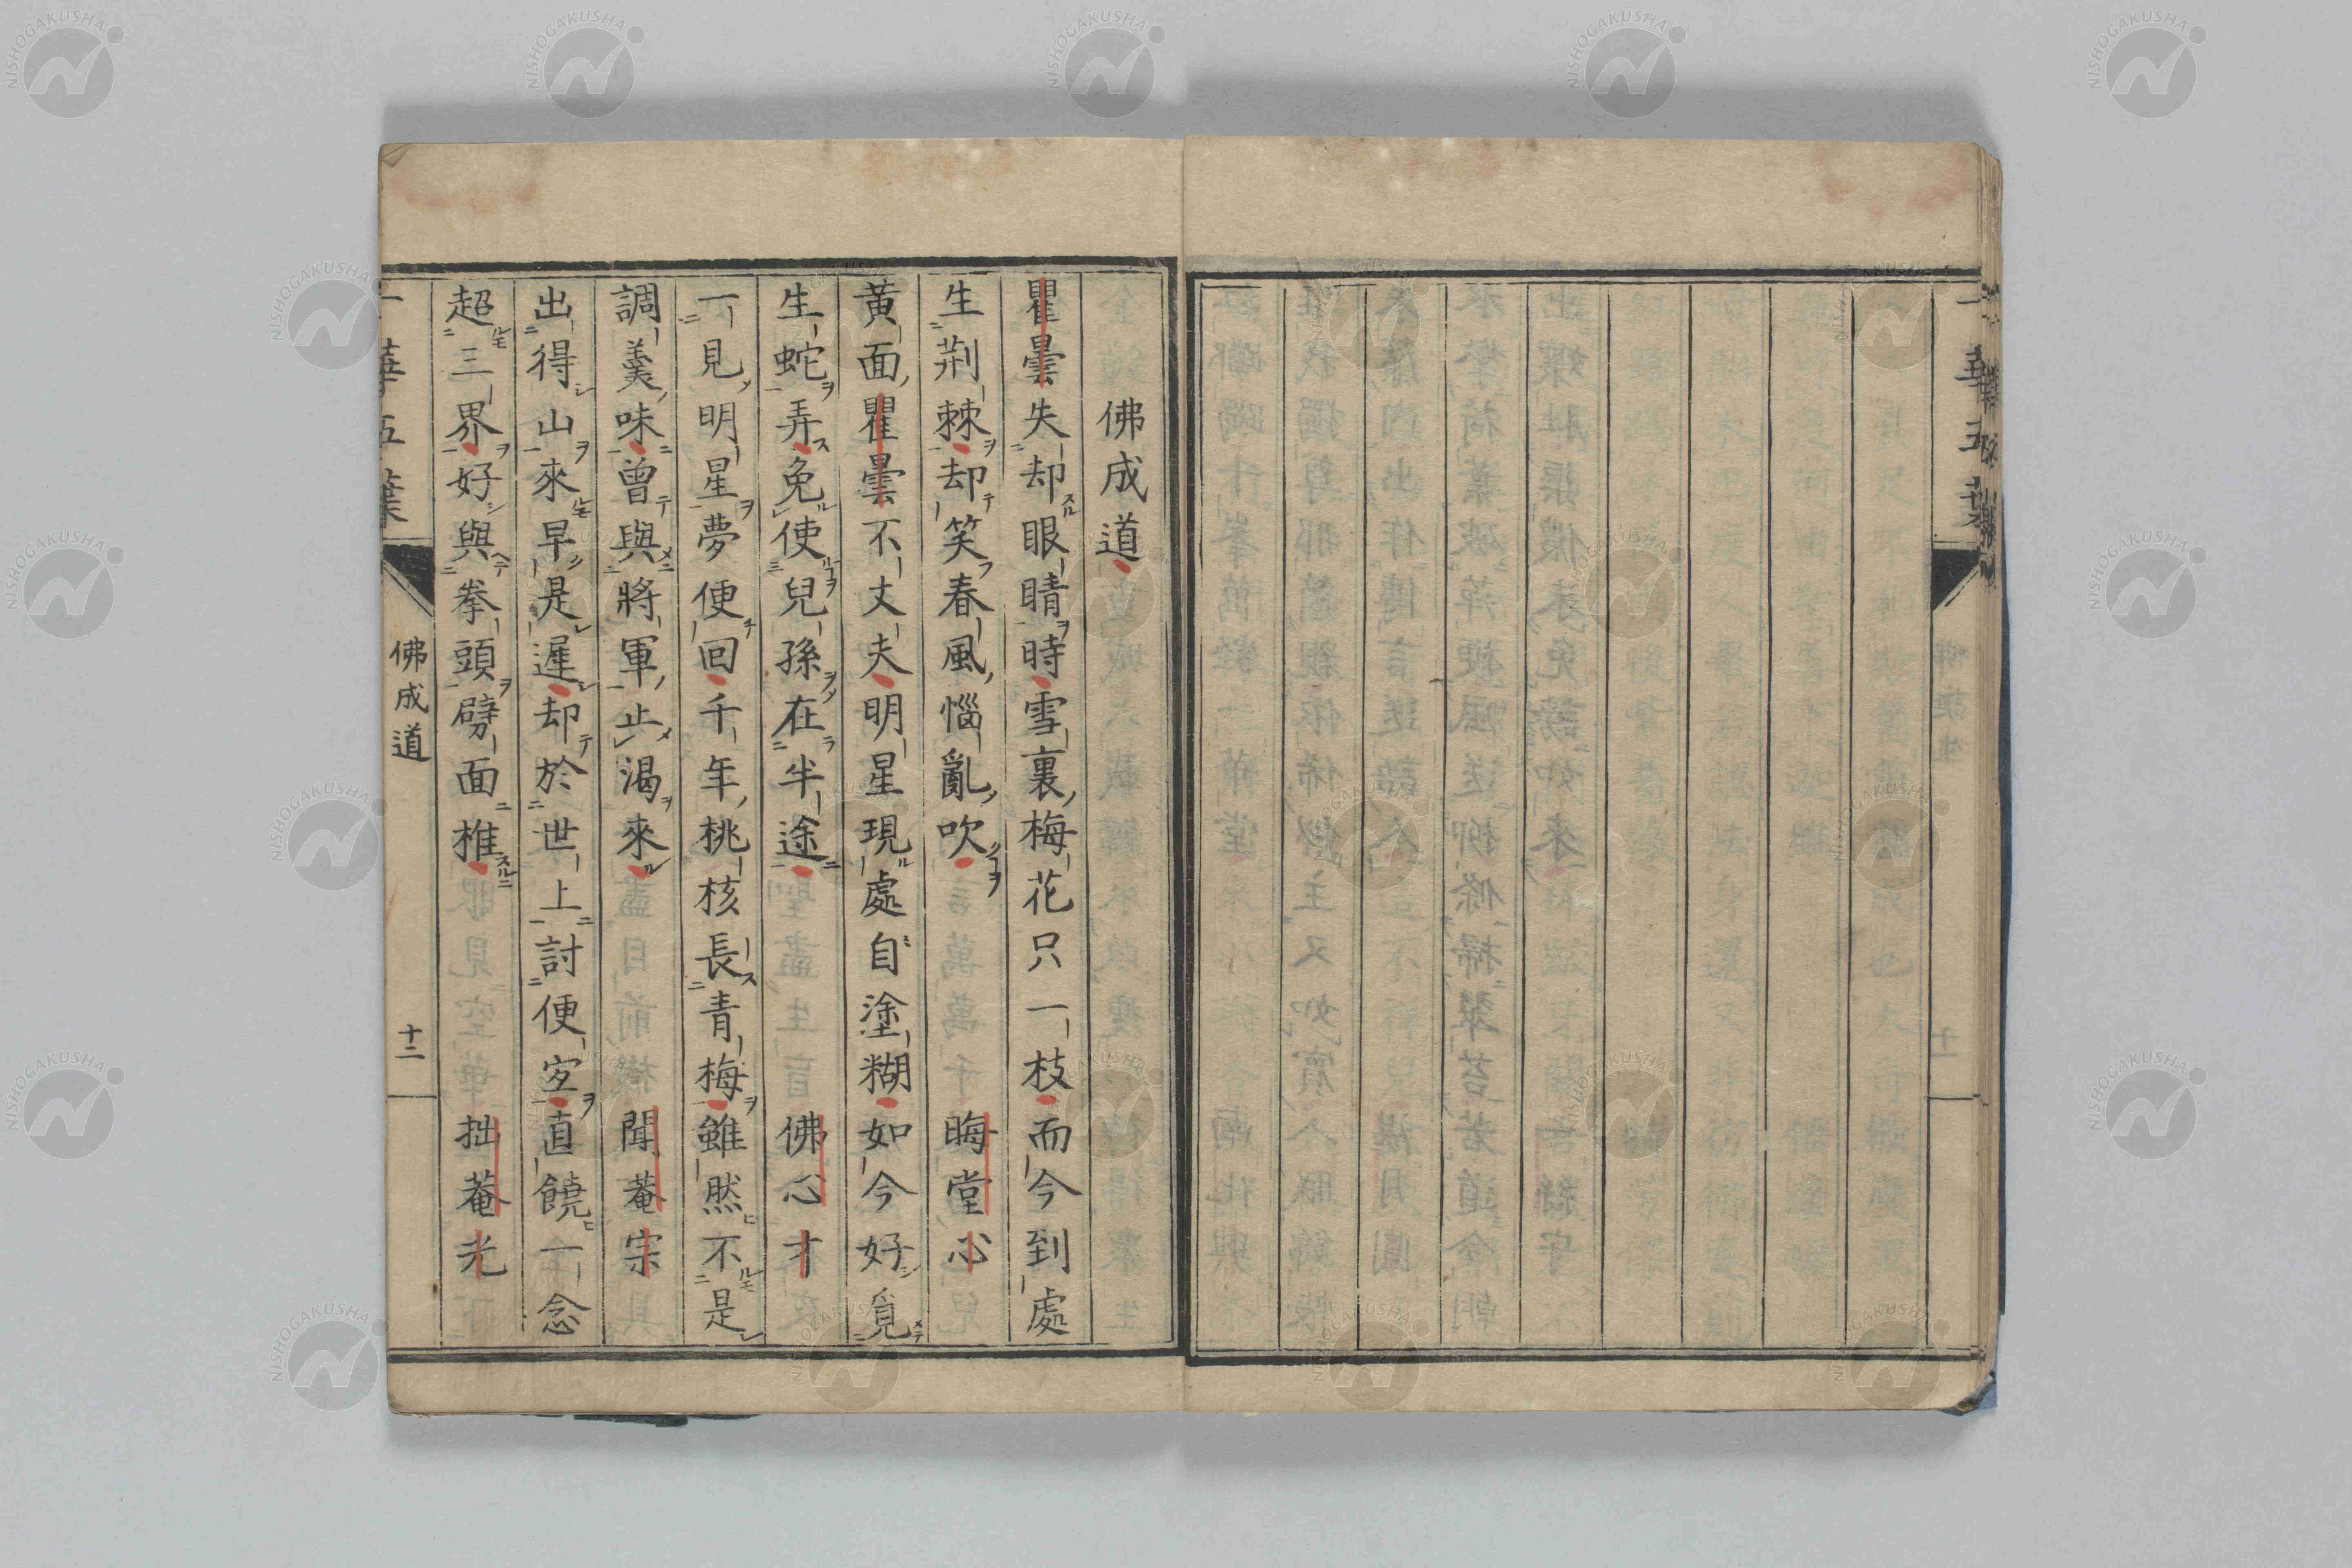 佛成道
瞿曇失却眼睛時雪裏梅花只一枝而今到處
生荊棘却笑春風惱亂吹 晦堂心
黃面瞿曇不丈夫明星現處自塗糊如今好覓
生蛇弄免使兒孫在半途 佛心才
一見明星夢便回千年桃核長青梅雖然不是
調羹味曾與將軍止渴來 聞菴宗
出得山來早是遲却於世上討便宜直饒一念
超三界好與拳頭劈面椎 拙菴光
一華五葉 佛成道 十二